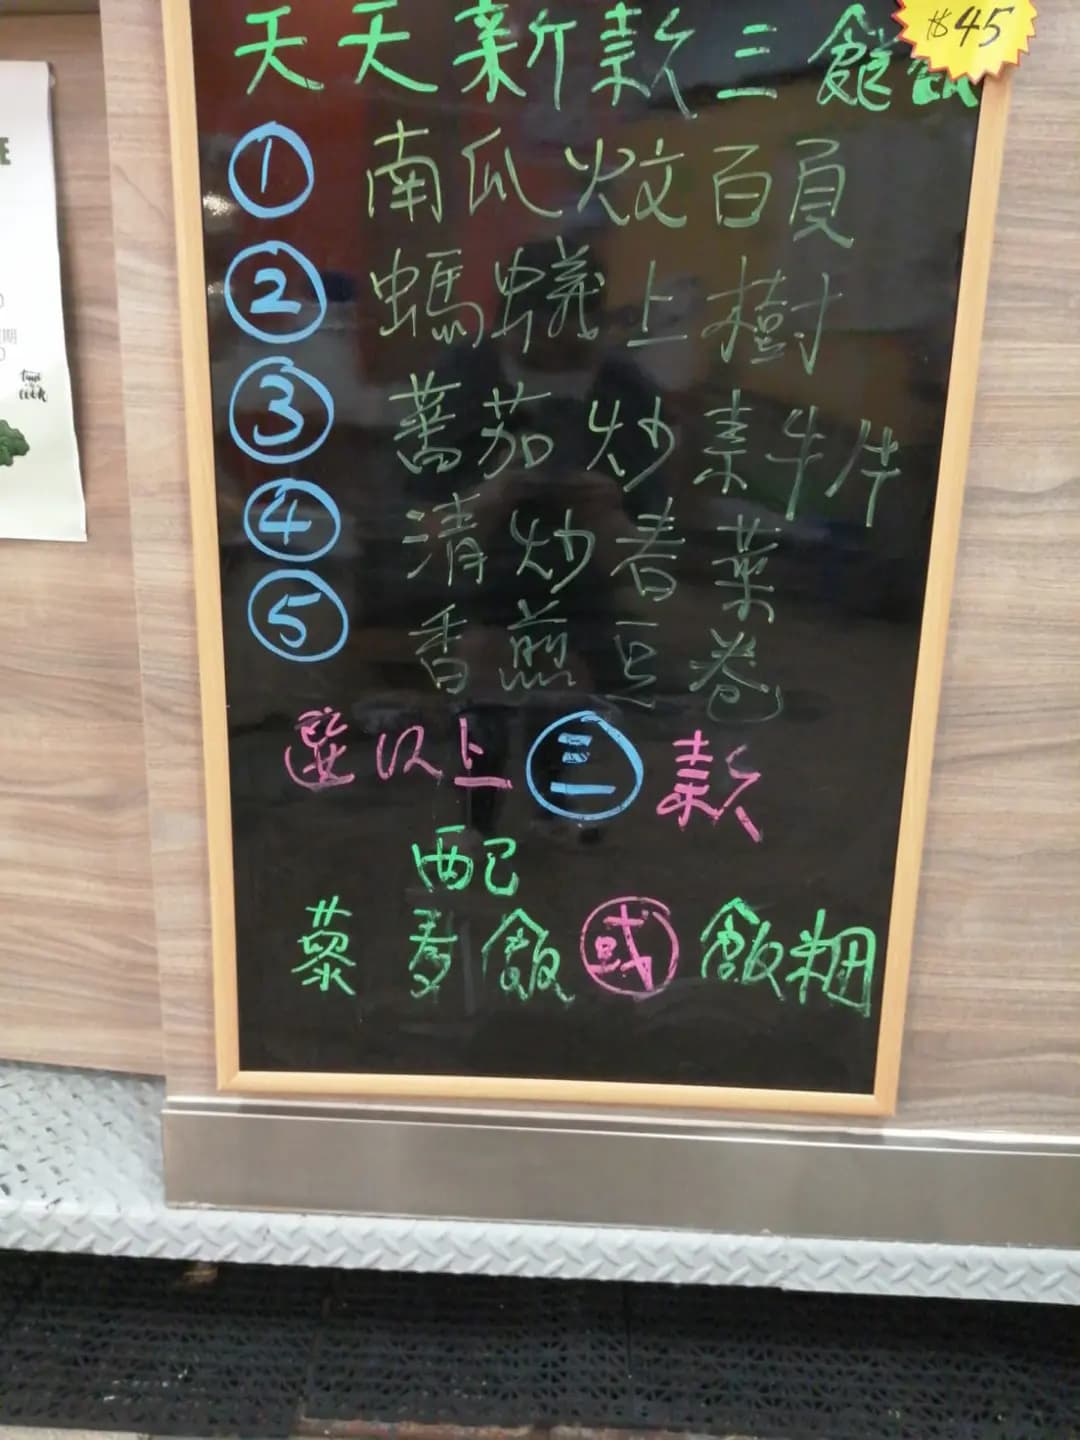 天天新款三餸飯
$45
① 南瓜炆百頁
② 螞蟻上樹
③ 蕃茄炒素牛片
④ 清炒春菜
⑤ 香煎豆卷
選以上三款
配
藜麥飯或飯糰
期
time to cook